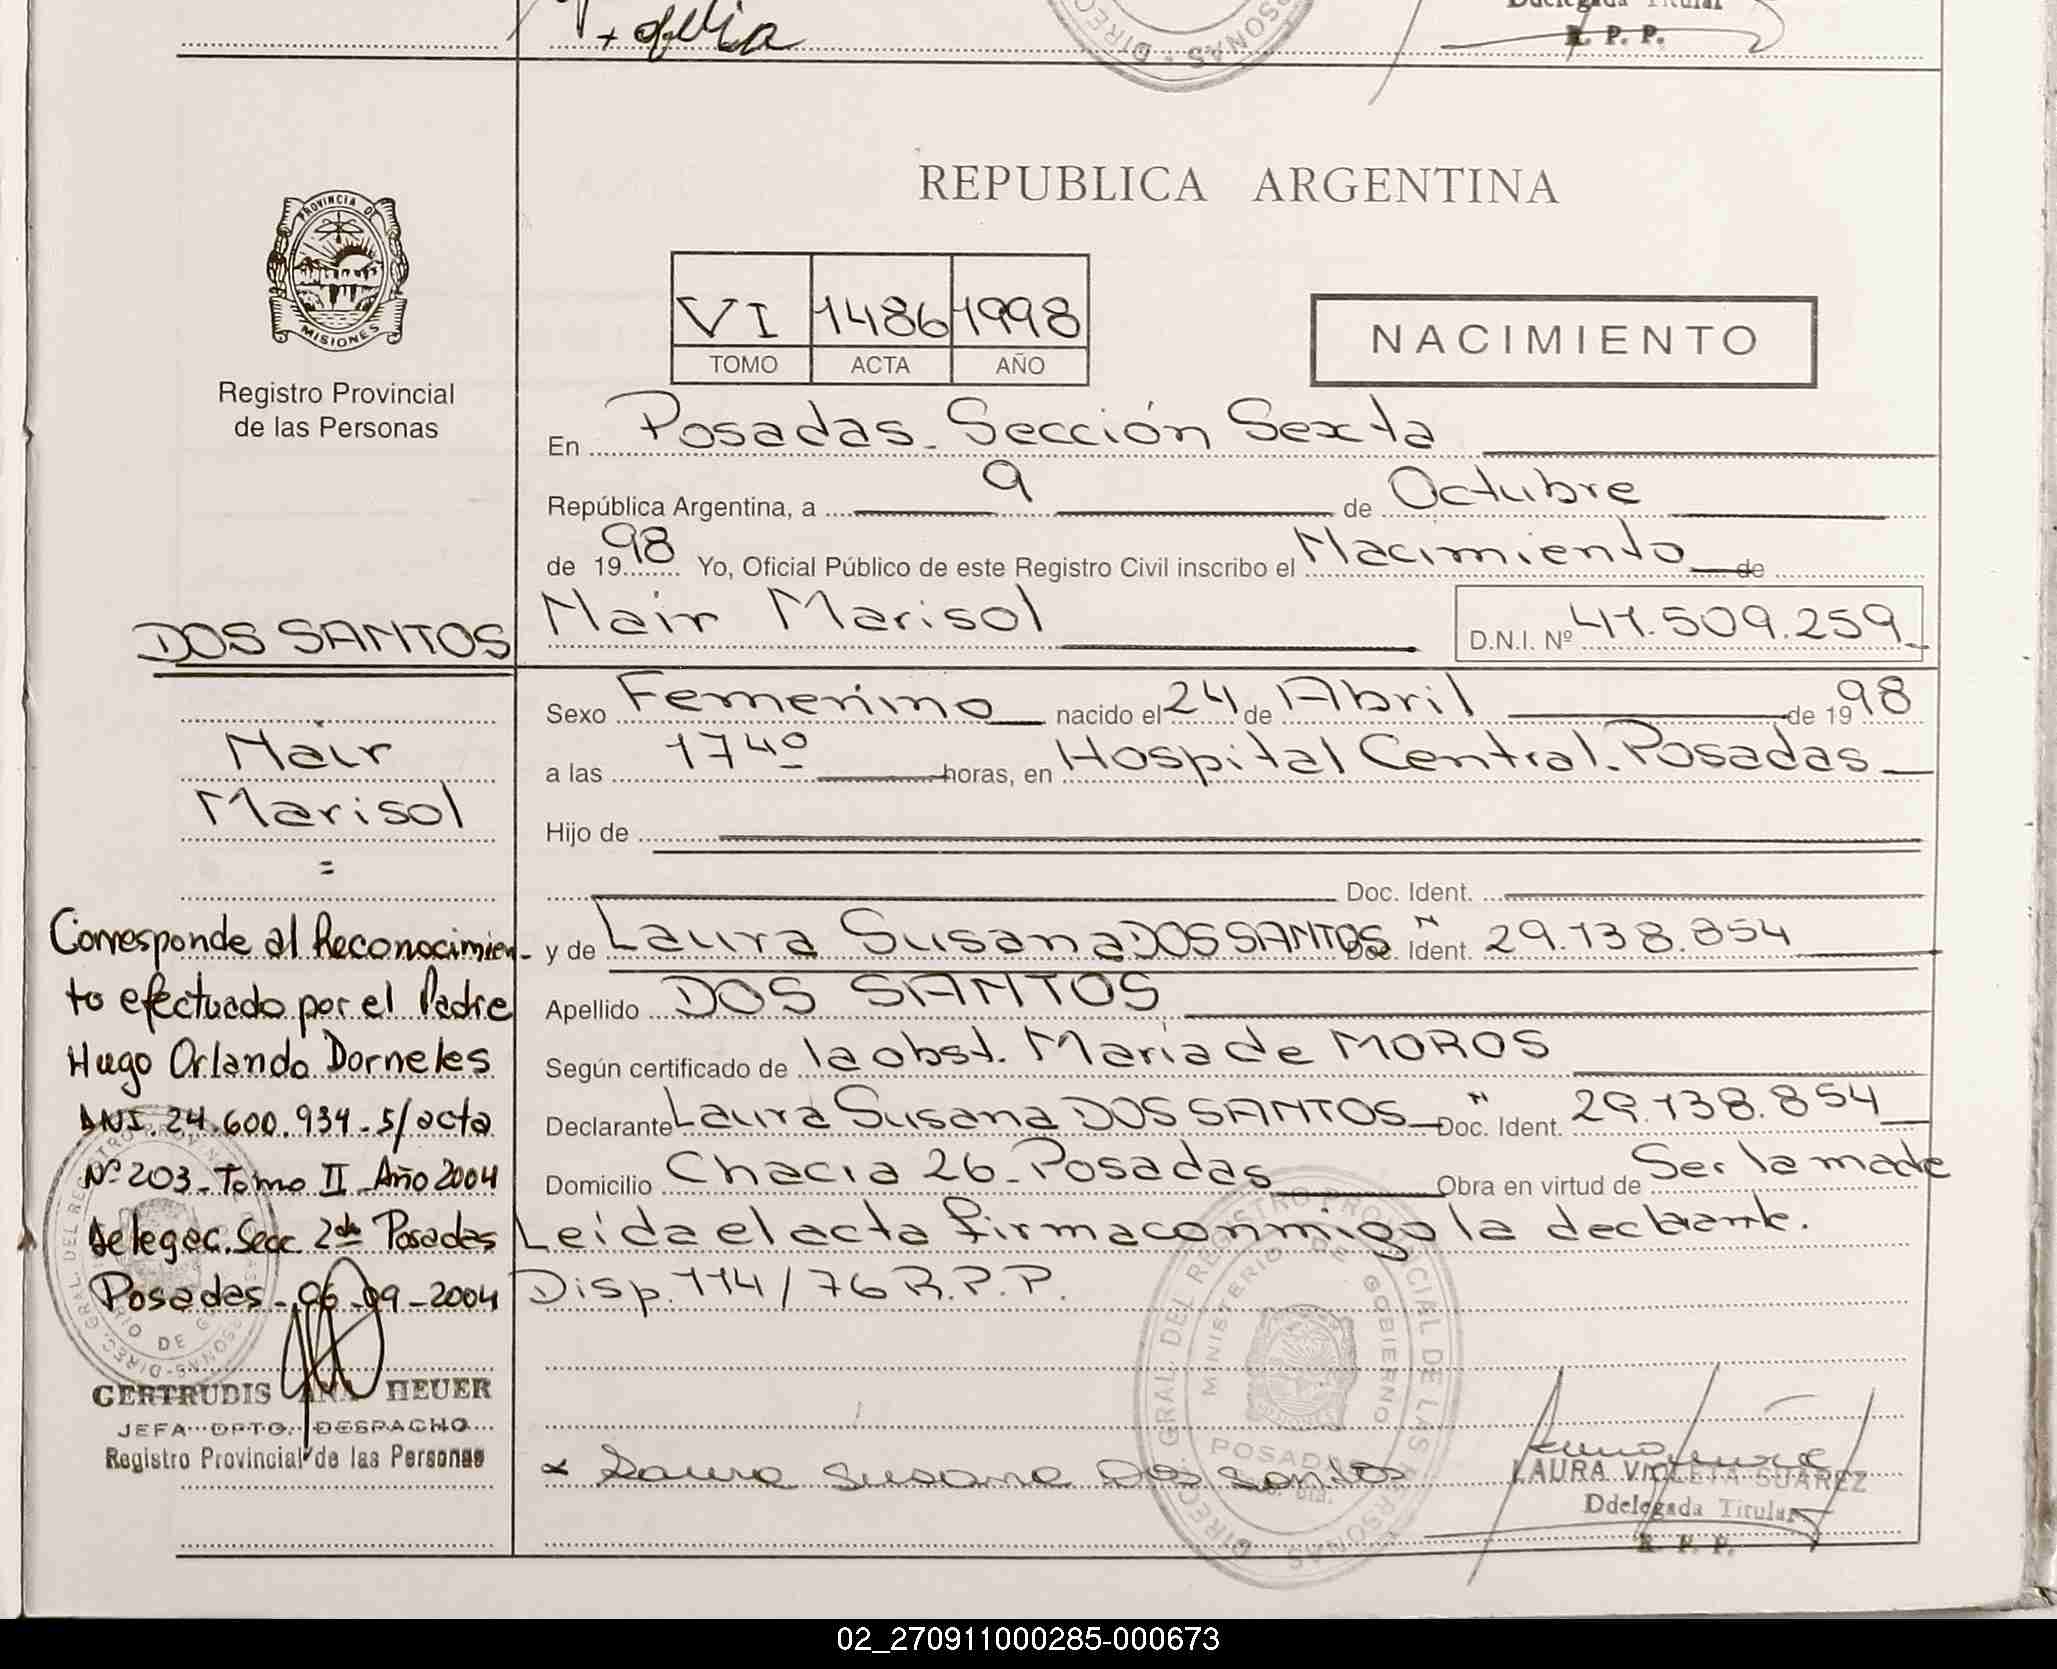 R. P. P.
REPUBLICA ARGENTINA
PROVINCIA DE
MISIONES
Registro Provincial
de las Personas
VI 1486 1998
TOMO ACTA AÑO
NACIMIENTO
En Posadas - Sección Sexta
República Argentina, a 9 de Octubre
de 1998 Yo, Oficial Público de este Registro Civil inscribo el Nacimiento de
Nair Marisol
D.N.I. Nº 41.509.259
DOS SANTOS
Nair
Marisol
=
Sexo Femenino nacido el 24 de Abril de 1998
a las 17 40 horas, en Hospital Central - Posadas
Hijo de
Doc. Ident.
y de Laura Susana DOS SANTOS Doc. Ident. N 29.138.854
Apellido DOS SANTOS
Según certificado de la obst. Maria de MOROS
Declarante Laura Susana DOS SANTOS Doc. Ident. N 29.138.854
Domicilio Chacra 26 - Posadas Obra en virtud de Ser la madre
Leida el acta firma conmigo la declarante.
Disp. 114/76 R.P.P.
Corresponde al Reconocimien-
to efectuado por el Padre
Hugo Orlando Dorneles
DNI. 24.600.934 - s/acta
Nº 203 - Tomo II - Año 2004
Delegac. Secc. 2da Posadas
Posadas - 06 - 09 - 2004
GERTRUDIS ANA HEUER
JEFA DPTO. DESPACHO
Registro Provincial de las Personas
x Laura Susana Dos Santos
DIREC. GRAL. DEL REGISTRO PROVINCIAL DE LAS PERSONAS
MINISTERIO DE GOBIERNO
LAURA VIOLETA SUAREZ
Ddelegada Titular
R. P. P.
02_270911000285-000673